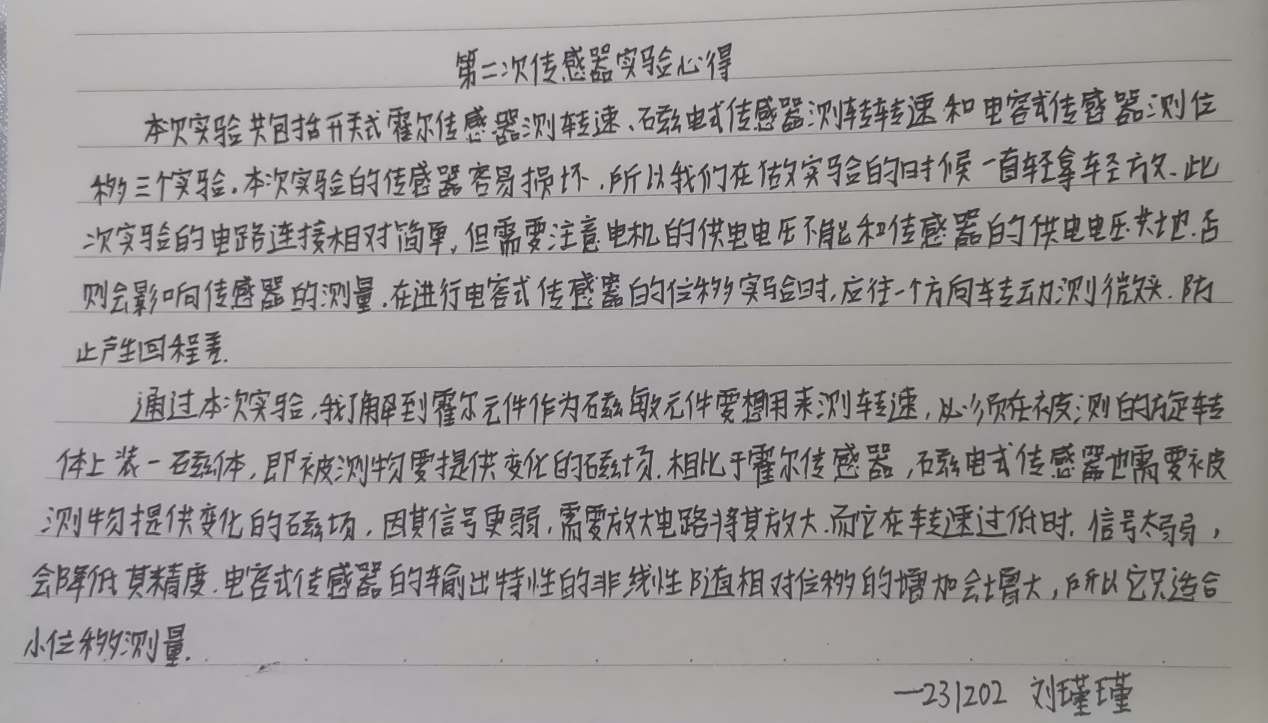 第二次传感器实验心得
本次实验共包括开关式霍尔传感器测转速、磁电式传感器测转转速和电容式传感器测位
移三个实验.本次实验的传感器容易损坏.所以我们在做实验的时候一直轻拿轻放.此
次实验的电路连接相对简单,但需要注意电机的供电电压不能和传感器的供电电压共地.否
则会影响传感器的测量.在进行电容式传感器的位移实验时,应往一个方向转动测微头.防
止产生回程差.
通过本次实验,我了解到霍尔元件作为磁敏元件要想用来测转速,必须在被测的旋转
体上装一磁体,即被测物要提供变化的磁场.相比于霍尔传感器,磁电式传感器也需要被
测物提供变化的磁场,因其信号更弱,需要放大电路将其放大.而它在转速过低时.信号太弱,
会降低其精度.电容式传感器的输出特性的非线性随相对位移的增加会增大,所以它只适合
小位移测量.
—231202 刘瑾瑾